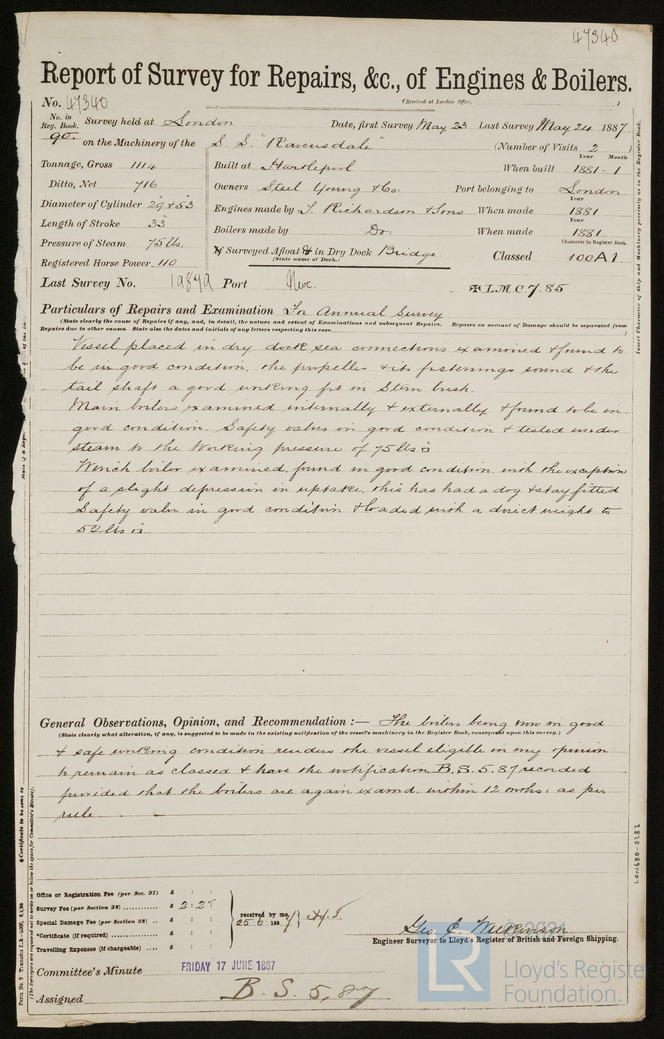 47340
Report of Survey for Repairs, &c., of Engines & Boilers.
(Received at London Office, )
No. 47340
No. in Reg. Book. Survey held at London Date, first Survey May 23 Last Survey May 24 1887
90. on the Machinery of the S.S. "Ravensdale" (Number of Visits 2 )
Year Month
Tonnage, Gross 1114 Built at Hartlepool When built 1881 - 1
Ditto, Net 716 Owners Steel Young & Co. Port belonging to London
Year
Diameter of Cylinder 29 & 53 Engines made by T. Richardson & Sons When made 1881
Year
Length of Stroke 33 Boilers made by Do. When made 1881
Character in Register Book.
Pressure of Steam 75 lbs. If Surveyed Afloat & in Dry Dock Bridge Classed 100A1
(State name of Dock.)
Registered Horse Power 110
Last Survey No. 19849 Port Nwc. ✠ L.M.C 7.85
Particulars of Repairs and Examination For Annual Survey
(State clearly the cause of Repairs if any, and, in detail, the nature and extent of Examinations and subsequent Repairs. Repairs on account of Damage should be separated from
Repairs due to other causes. State also the dates and initials of any letters respecting this case. )
Vessel placed in dry dock sea connections examined & found to
be in good condition, the propeller & its fastenings sound & the
tail shaft a good working fit in Stern bush.
Main boilers examined internally & externally & found to be in
good condition. Safety valves in good condition & tested under
steam to the working pressure of 75 lbs □
Winch boiler examined, found in good condition, with the exception
of a slight depression in uptake, this has had a dog & stay fitted
Safety valve in good condition & loaded with a direct weight to
52 lbs □.
General Observations, Opinion, and Recommendation :— The boilers being now in good
(State clearly what alteration, if any, is suggested to be made in the existing notification of the vessel's machinery in the Register Book, consequent upon this survey.)
& safe working condition renders the vessel eligible in my opinion
to remain as classed & have the notification B.S. 5.87 recorded
provided that the boilers are again examd. within 12 mths: as per
rule.
Office or Registration Fee (per Sec. 27) £ : :
Survey Fee (per Section 28) £ 2: 2
Special Damage Fee (per Section 28) £ : :
*Certificate (if required) £ : :
Travelling Expenses (if chargeable) £ : :
received by me,
25 6 1887
Geo. C. Wilkinson
Engineer Surveyor to Lloyd's Register of British and Foreign Shipping.
Committee's Minute FRIDAY 17 JUNE 1887
Assigned B. S. 5, 87
Insert Character of Ship and Machinery precisely as in the Register Book.
LON680-0182
LR
Lloyd's Register
Foundation.